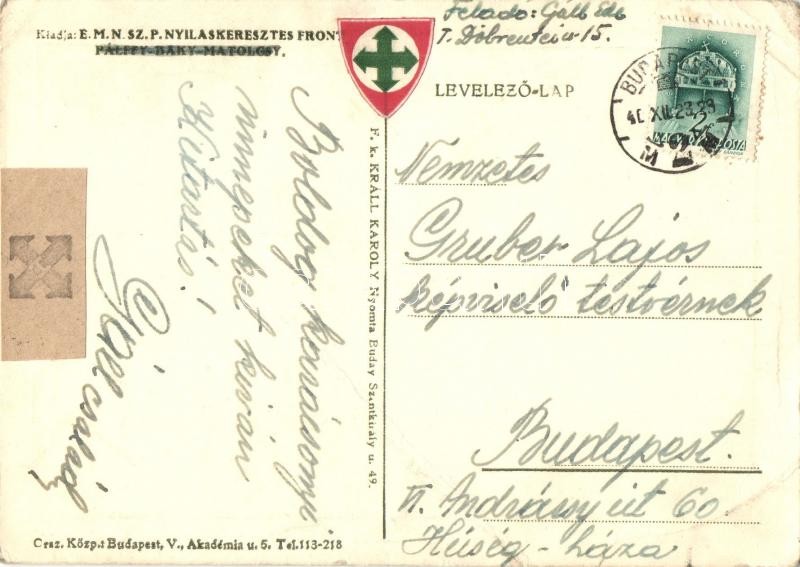 Kiadja: E. M. N. SZ. P. NYILASKERESZTES FRONT
PÁLFFY-BAKY-MATOLCSY.
Feladó: Gáll
T. Döbrentei u 15.
LEVELEZŐ-LAP
BUDAPEST
MAGYAR POSTA
Nemzetes
Gruber Lajos
Képviselő testvérnek
Budapest.
VI. Andrássy út 60.
Hűség-háza
F. k. KRÁLL KAROLY Nyomta Buday Szentkirály u. 49.
Boldog karácsonyi
ünnepeket kiván
Kitartás!
Gáll család
Orsz. Közp.: Budapest, V., Akadémia u. 5. Tel. 113-218